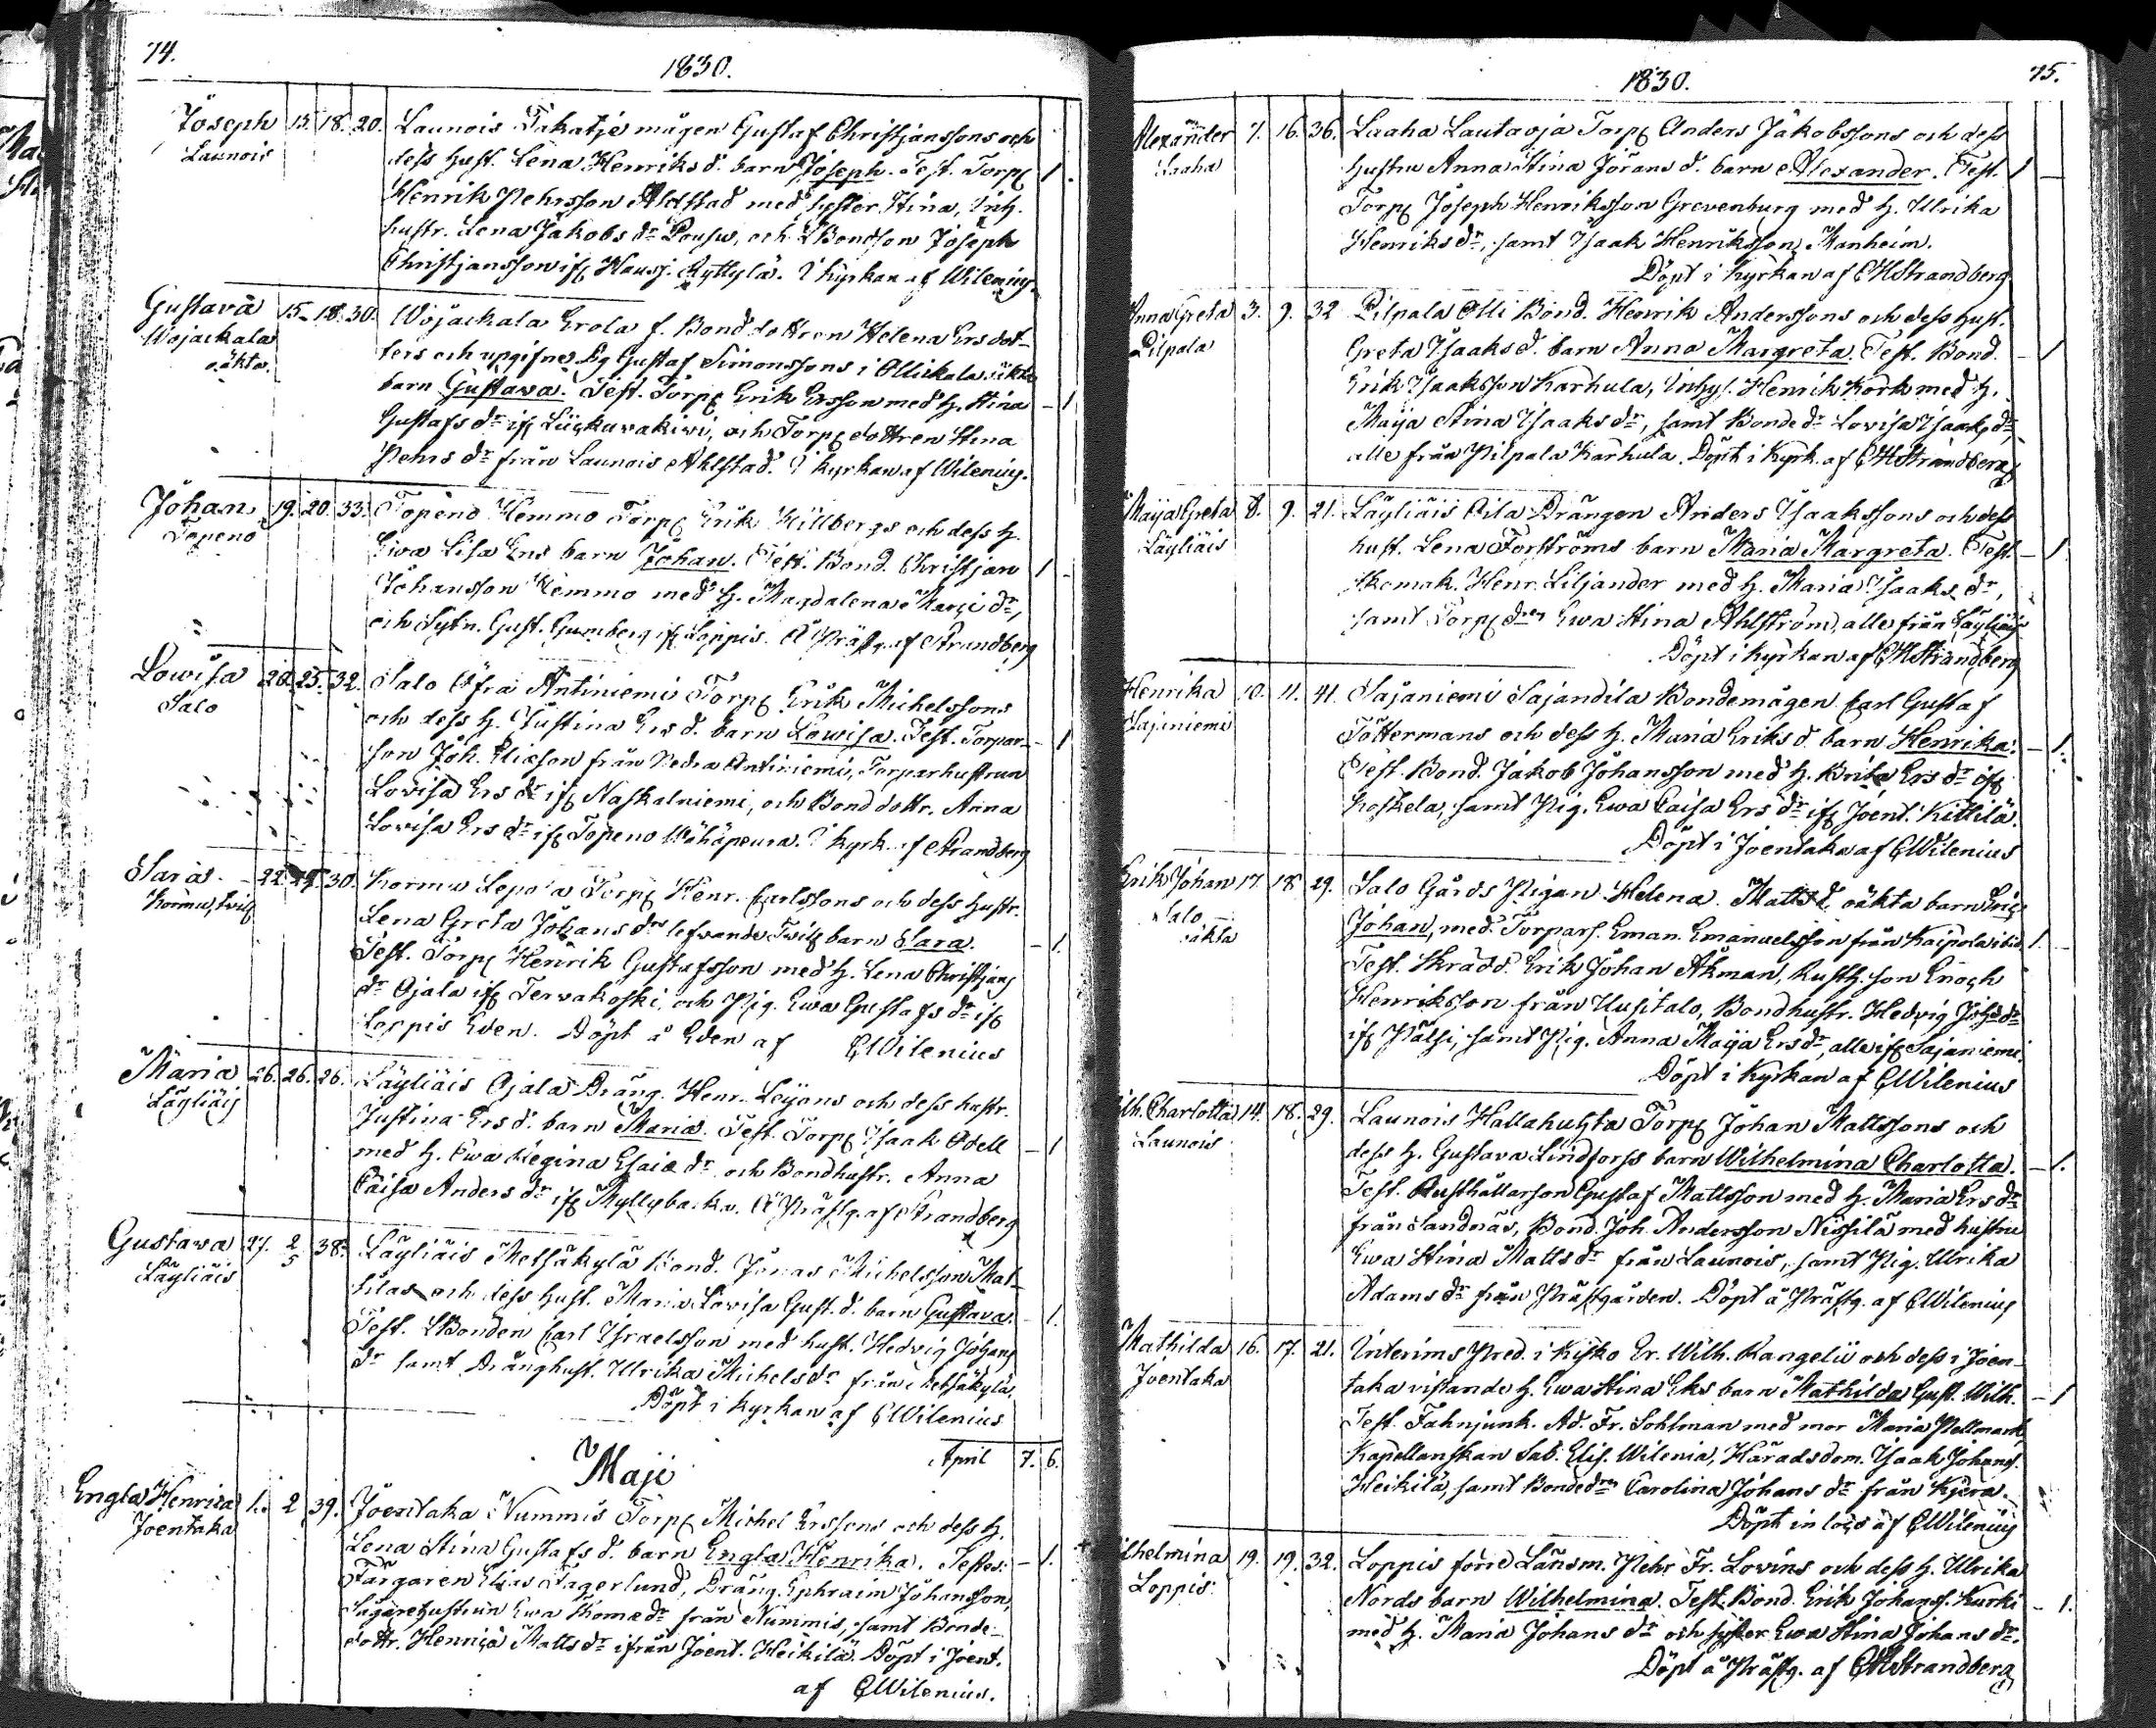 74.
1830.
Joseph 15. 18. 20. Launois Takatje mågen Gustaf Christjanssons och
Launois dess hust. Lena Henriks d. barn Joseph. Test. Torp. 1
Henrik Pehrsson Ahlstad med syster Stina, Inh.
hustr. Lena Jakobs dr Pousu, och LBondson Joseph
Christjansson if. Hausj. Ryttylä. I kyrkan af Wilenius.
Gustava 15. 18. 30. Wojackala Erola f. Bond dottren Helena Ers dot-
Wojackala ters och upgifne Lg Gustaf Simonssons i Ollickala oäkta
oäkta. barn Gustava. Test. Torp. Erik Ersson med h. Stina - 1
Gustafs dr if. Liuckuvakivi, och Torp. dottren Stina
Pehrs dr från Launois Ahlstad. I kyrkan af Wilenius.
Johan 19. 20. 33. Topeno Hemmo Torp. Erik Hillbergs och dess h.
Topeno Eiva Lisa Ers barn Johan. Test. Bond. Christjan 1 -
Johansson Hemmo med h. Magdalena Marci dr,
och Sytn. Gust. Gumberg if. Loppis. Å Prästg. af Strandberg
Lowisa 20. 25. 32. Salo Öfra Antiniemi Torp. Erik Michelssons
Salo och dess h. Justina Ers d. barn Lowisa. Test. Torpar- - 1
son Joh. Eliæson från Nedra Antiniemi, Torparhustrun
Lovisa Ers dr if. Naskalniemi, och Bond dottr. Anna
Lovisa Ers dr if. Topeno Wähäpeura. I kyrk. af Strandberg
Sara 22. 29. 30. Kormu Lepola Torp. Henr. Carlssons och dess hustr.
Kormu, twil. Lena Greta Johans drs lefvande Twill. barn Sara. - 1.
Test. Torp. Henrik Gustafsson med h. Lena Christjans
dr Ojala if. Tervakoski, och Pig. Ewa Gustafs dr if.
Loppis Eden. Döpt å Eden af CWilenius
Maria 26. 26. 26. Läyliäis Ojala Dräng. Henr. Leijons och dess hustr.
Läyliäis Justina Ers d. barn Maria. Test. Torp. Isaak Odell - 1
med h. Ewa Regina Esaiæ dr och Bondhustr. Anna
Caisa Anders dr if. Myllybacka. Å Prästg. af Strandberg
Gustava 27. 2/5 38. Läyliäis Metsäkylä Bond. Jonas Michelsson Mat-
Läyliäis tilas och dess hust. Maria Lovisa Gust. d. barn Gustava. - 1.
Test. LBonden Carl Israelsson med hust. Hedvig Johans
dr samt Dränghust. Ulrika Michels dr från Metsäkylä.
Döpt i kyrkan af CWilenius
April 7. 6.
Maji
Engla Henrica 1. 2 39. Joentaka Nummis Torp. Michel Erssons och dess h.
Joentaka Lena Stina Gustafs d. barn Engla Henrika. Testes: - 1.
Färgaren Elias Fagerlund, Dräng. Ephraim Johansson,
Sågarehustrun Ewa Thomæ dr från Nummis, samt Bonde-
dottr. Henrica Matts dr ifrån Joent. Heikilä. Döpt i Joent.
af CWilenius.
75.
1830.
Alexander 7. 16. 36. Laaha Lautavja Torp. Anders Jakobssons och dess
Laaha hustru Anna Stina Jörans d. barn Alexander. Test. 1 -
Torp. Joseph Henriksson Grevenburg med h. Ulrika
Henriks dr, samt Isaak Henriksson Manheim.
Döpt i Kyrkan af CHStrandberg
Anna Greta 3. 9. 32 Pilpala Olli Bond. Henrik Anderssons och dess hust.
Pilpala Greta Isaaks d. barn Anna Margreta. Test. Bond. - 1
Erik Isaaksson Karhula, Inhys. Henrik Kork med h.
Maija Stina Isaaks dr, samt Bonde dr Lovisa Isaaks dr
alle från Pilpala Karhula. Döpt i Kyrk. af CHStrandberg
Maija Greta 8. 9. 21. Läyliäis Eila Drängen Anders Isaakssons och dess
Läyliäis hust. Lena Forströms barn Maria Margreta. Test. - 1
Skomak. Henr. Liljander med h. Maria Isaaks dr,
samt Torp. dren Ewa Stina Ahlström, alle från Läyliäis
Döpt i kyrkan af CHStrandberg
Henrika 10. 11. 41. Sajaniemi Sajandila Bondemågen Carl Gustaf
Sajaniemi Töttermans och dess h. Maria Eriks d. barn Henrika. - 1.
Test. Bond. Jakob Johansson med h. Brita Ers dr if.
Koskela, samt Pig. Ewa Caisa Ers dr if. Joent. Kittilä.
Döpt i Joentaka af CWilenius
Erik Johan 17. 18 29. Salo Gårds Pigan Helena Matts d. oäkta barn Eric
Salo Johan, med Torpars. Eman. Emanuelsson från Kaipola ibid. 1. -
oäkta Test. Skradd. Erik Johan Åkman, Rusth. son Enoch
Henriksson från Uusitalo, Bondhustr. Hedvig Johs dr
if. Pälsi, samt Pig. Anna Maija Ers dr, alle if. Sajaniemi.
Döpt i Kyrkan af CWilenius
Wilh. Charlotta 14. 18. 29. Launois Hallahuhta Torp. Johan Mattssons och
Launois dess h. Gustava Lindforss barn Wilhelmina Charlotta. - 1.
Test. Rusthållarson Gustaf Mattsson med h. Maria Ers dr
från Sandnäs, Bond. Joh. Andersson Nissilä med hustru
Ewa Stina Matts dr från Launois, samt Pig. Ulrika
Adams dr från Prästgården. Döpt å Prästg. af CWilenius
Mathilda 16. 17. 21. Interims Pred. i Kisko Er. Wilh. Rangelii och dess i Joen-
Joentaka taka vistande h. Ewa Stina Eks barn Mathilda Gust. Wilh. - 1
Test. Fahnjunk. Ad. Fr. Sohlman med mor Maria Pellmank
Kapellanskan Sab. Elis. Wilenia, Häradsdom. Isaak Johans.
Heikilä, samt Bonde dren Carolina Johans dr från Kjera.
Döpt in loco af CWilenius
Wilhelmina 19. 19. 32. Loppis förre Länsm. Pehr Fr. Lovins och dess h. Ulrika
Loppis. Nords barn Wilhelmina. Test. Bond. Erik Johans. Kurki - 1.
med h. Maria Johans dr och syster Ewa Stina Johans dr.
Döpt å Prästg. af CHStrandberg